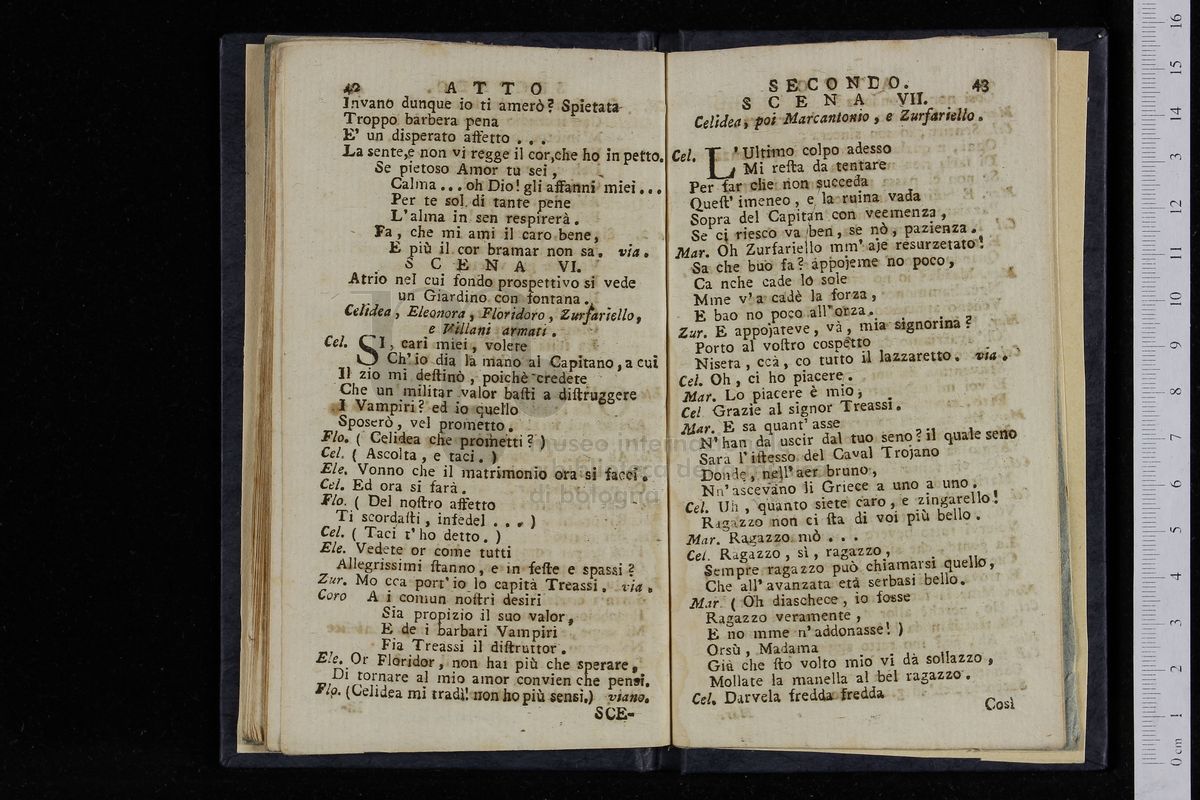 42 ATTO
Invano dunque io ti amerò? Spietata
Troppo barbera pena
E' un disperato affetto . . .
La sente,e non vi regge il cor,che ho in petto.
Se pietoso Amor tu sei ,
Calma ... oh Dio! gli affanni miei ...
Per te sol di tante pene
L'alma in sen respirerà .
Fa , che mi ami il caro bene,
E più il cor bramar non sa. via.
SCENA VI.
Atrio nel cui fondo prospettivo si vede
un Giardino con fontana.
Celidea , Eleonora , Floridoro , Zurfariello,
e Villani armati .
Cel. SI, cari miei, volere
Ch'io dia la mano al Capitano, a cui
Il zio mi destinò , poichè credete
Che un militar valor basti a distruggere
I Vampiri? ed io quello
Sposerò, vel prometto.
Flo. ( Celidea che prometti? )
Cel. ( Ascolta , e taci. )
Ele. Vonno che il matrimonio ora si facci.
Cel. Ed ora si farà.
Flo. ( Del nostro affetto
Ti scordasti , infedel ... )
Cel. ( Taci t'ho detto. )
Ele. Vedete or come tutti
Allegrissimi stanno, e in feste e spassi?
Zur. Mo cca port'io lo capità Treassi. via.
Coro A i comun nostri desiri
Sia propizio il suo valor,
E de i barbari Vampiri
Fia Treassi il distruttor.
Ele. Or Floridor, non hai più che sperare,
Di tornare al mio amor convien che pensi.
Flo. (Celidea mi tradì! non ho più sensi.) viano.
SCE-
SECONDO. 43
SCENA VII.
Celidea, poi Marcantonio , e Zurfariello.
Cel. L'Ultimo colpo adesso
Mi resta da tentare
Per far che non succeda
Quest' imeneo , e la ruina vada
Sopra del Capitan con veemenza ,
Se ci riesco va ben, se nò, pazienza.
Mar. Oh Zurfariello mm' aje resurzetato!
Sa che buò fa? appojeme no poco,
Ca nche cade lo sole
Mme v'a cadè la forza,
E bao no poco all'orza.
Zur. E appojateve, và, mia signorina?
Porto al vostro cospetto
Niseta, ccà, co tutto il lazzaretto. via.
Cel. Oh, ci ho piacere.
Mar. Lo piacere è mio;
Cel Grazie al signor Treassi.
Mar. E sa quant' asse
N'han da uscir dal tuo seno? il quale seno
Sara l'istesso del Caval Trojano
Donde, nell'aer bruno,
Nn'ascevano li Griece a uno a uno.
Cel. Uh, quanto siete caro, e zingarello!
Ragazzo non ci sta di voi più bello.
Mar. Ragazzo mò . . .
Cel. Ragazzo, sì, ragazzo,
Sempre ragazzo può chiamarsi quello,
Che all'avanzata età serbasi bello.
Mar. ( Oh diaschece, io fosse
Ragazzo veramente,
E no mme n'addonasse! )
Orsù, Madama
Già che sto volto mio vi dà sollazzo,
Mollate la manella al bel ragazzo.
Cel. Darvela fredda fredda
Così